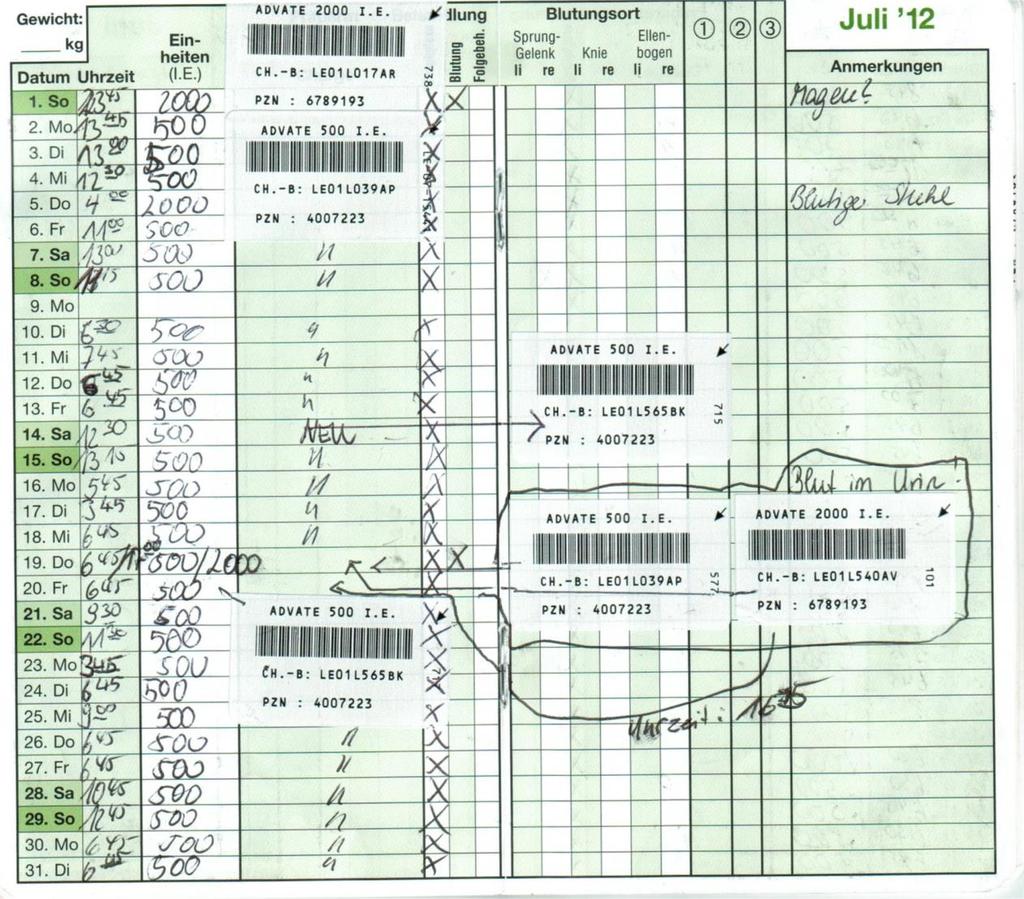 Gewicht:
kg
ADVATE 2000 I.E.
dlung
Blutungsort
① ② ③
Juli '12
Datum Uhrzeit
Ein-
heiten
(I.E.)
Blutung
Folgebeh.
Sprung-
Gelenk
Knie
Ellen-
bogen
li re li re li re
Anmerkungen
CH.-B: LE01L017AR
738
PZN : 6789193
1. So 2000 X X Magen?
2. Mo 13 45 500 X
ADVATE 500 I.E.
3. Di 13 00 500 X
4. Mi 12 30 500 X
CH.-B: LE01L039AP
5. Do 4 00 2000 X Blutiger Stuhl
PZN : 4007223
6. Fr 11 00 500 X
7. Sa 13 00 500 " X
8. So 500 " X
9. Mo
10. Di 6 30 500 " X
11. Mi 7 45 500 " X
12. Do 6 45 500 " X
13. Fr 6 45 500 " X
ADVATE 500 I.E.
CH.-B: LE01L565BK
715
PZN : 4007223
14. Sa 12 30 500 NEU X
15. So 13 10 500 " X
16. Mo 5 45 500 " X Blut im Urin
17. Di 3 45 500 " X
18. Mi 6 45 500 " X
ADVATE 500 I.E.
CH.-B: LE01L039AP
577
PZN : 4007223
ADVATE 2000 I.E.
CH.-B: LE01L540AV
101
PZN : 6789193
19. Do 6 45 500/2000 X X
20. Fr 6 45 500 X
21. Sa 9 30 500 X
ADVATE 500 I.E.
22. So 11 30 500 X
23. Mo 3 45 500 X
CH.-B: LE01L565BK
24. Di 6 45 500 X
PZN : 4007223
25. Mi 9 00 500 X
Uhrzeit: 16
26. Do 6 45 500 " X
27. Fr 6 45 500 " X
28. Sa 10 45 500 " X
29. So 12 45 500 " X
30. Mo 6 45 500 " X
31. Di 6 45 500 " X